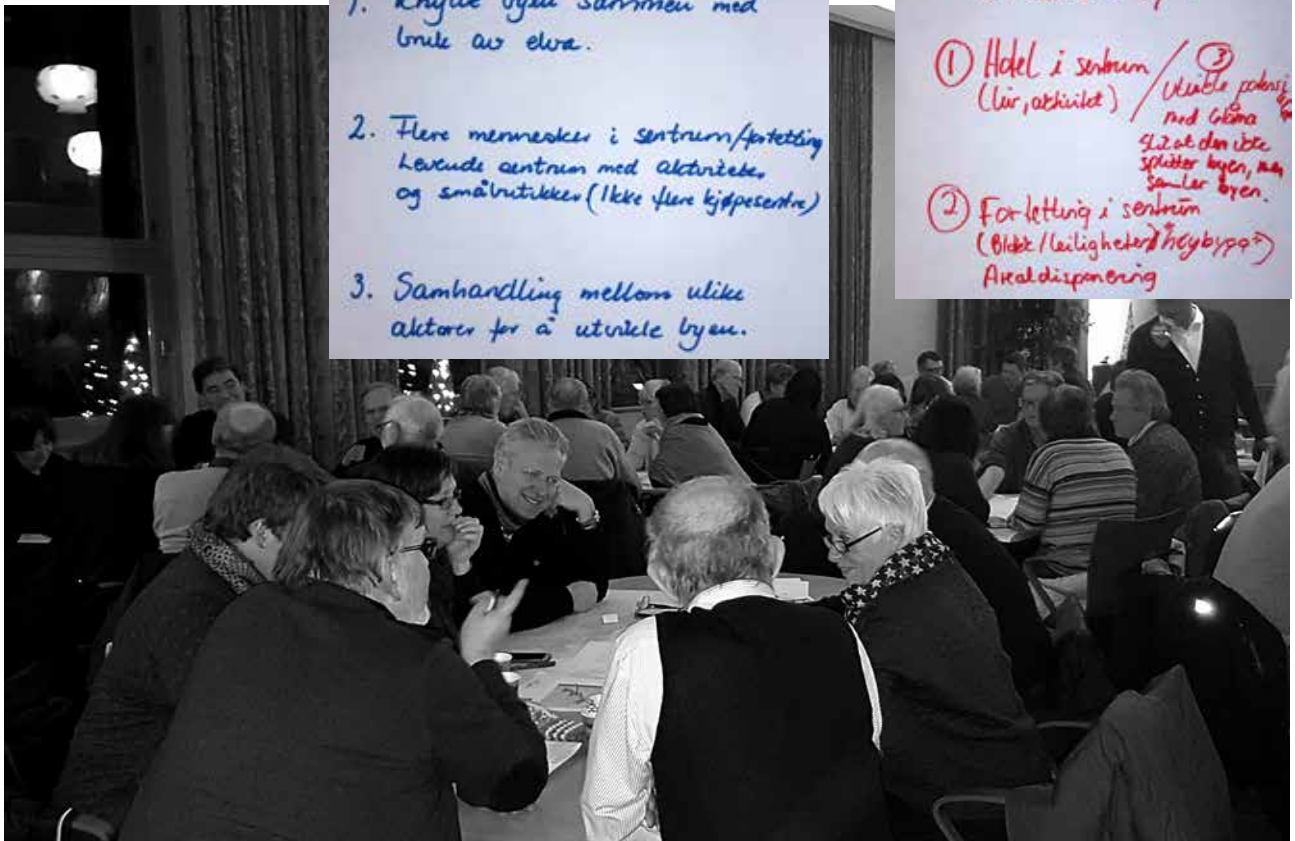 1. Knytte byen sammen med
bruk av elva.
2. Flere mennesker i sentrum/fortetting
Levende sentrum med aktiviteter
og småbutikker (Ikke flere kjøpesentre)
3. Samhandling mellom ulike
aktører for å utvikle byen.
① Hotel i sentrum
(liv, aktivitet)
③
med Glåma
slik at den ikke
splitter byen, men
samler byen.
② Fortetting i sentrum
(Blokk/leiligheter/"høybygg")
Arealdisponering